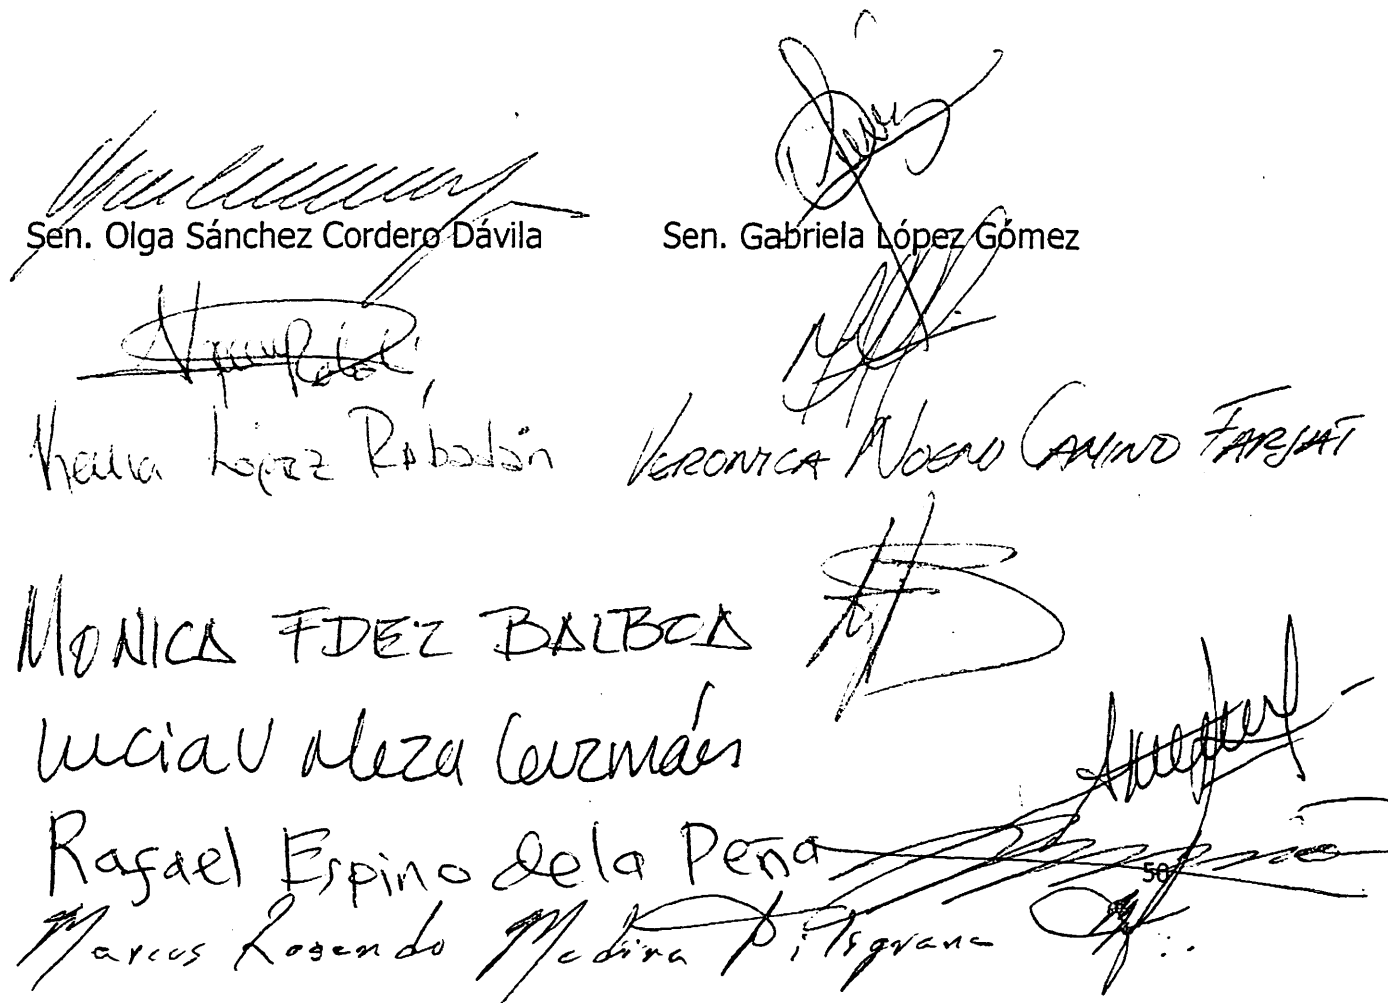 Sen. Olga Sánchez Cordero Dávila Sen. Gabriela López Gómez
Kenia López Rabadán VERONICA NOEMI CAMINO FARJAT
MONICA FDEZ BALBOA
Lucia V Meza Guzmán
Rafael Espino de la Peña
50
Marcos Rosendo Medina Filigrana